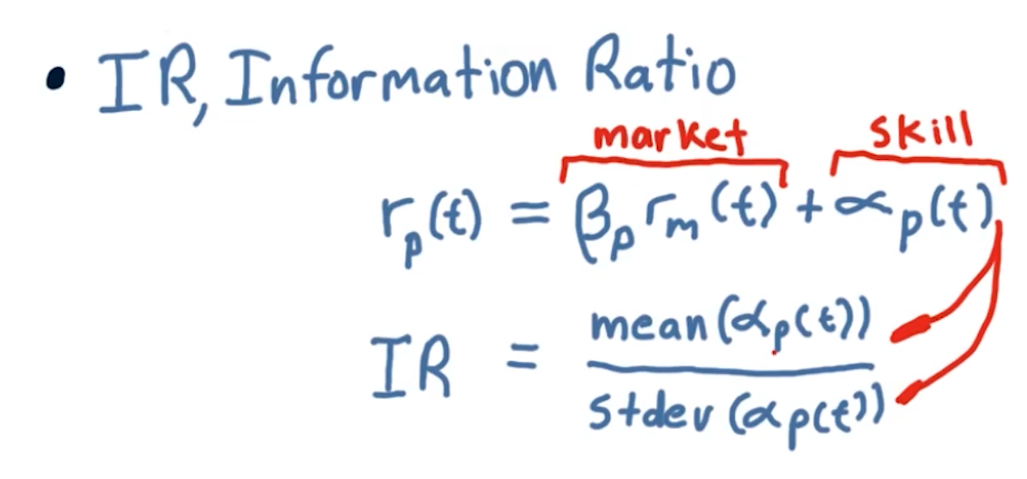 • IR, Information Ratio
market skill
rₚ(t) = βₚ rₘ(t) + αₚ(t)
IR = mean(αₚ(t))
stdev(αₚ(t))